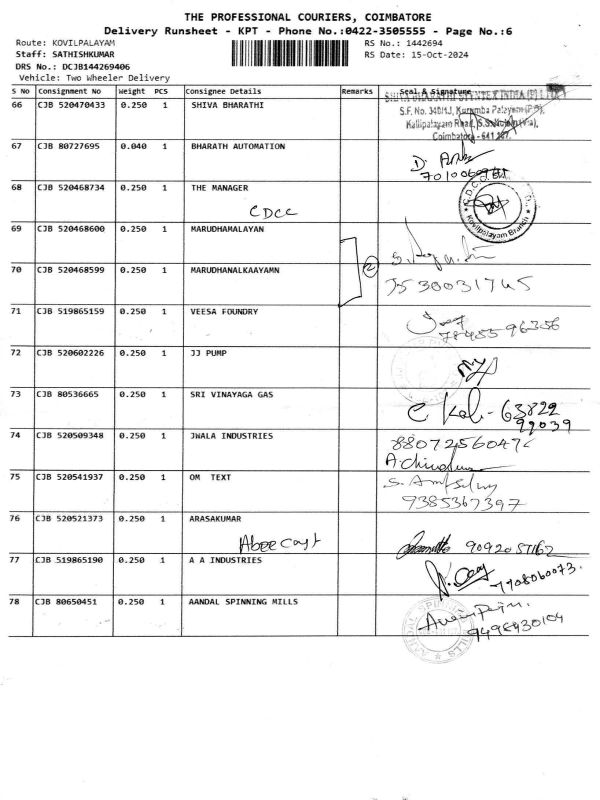 THE PROFESSIONAL COURIERS, COIMBATORE
Delivery Runsheet - KPT - Phone No.:0422-3505555 - Page No.:6
Route: KOVILPALAYAM RS No.: 1442694
Staff: SATHISHKUMAR RS Date: 15-Oct-2024
DRS No.: DCJB144269406
Vehicle: Two Wheeler Delivery
S No Consignment No Weight PCS Consignee Details Remarks Seal & Signature
66 CJB 520470433 0.250 1 SHIVA BHARATHI
S.F. No. 340/1J, Kurumba Palayam (P.O),
Kallipalayam Road, S.S.Kulam (Via),
Coimbatore - 641 107.
67 CJB 80727695 0.040 1 BHARATH AUTOMATION
68 CJB 520468734 0.250 1 THE MANAGER
CDCC
Kovilpalayam Branch
69 CJB 520468600 0.250 1 MARUDHAMALAYAN
2
70 CJB 520468599 0.250 1 MARUDHANALKAAYAMN
7530031745
71 CJB 519865159 0.250 1 VEESA FOUNDRY
78455 96356
72 CJB 520602226 0.250 1 JJ PUMP
73 CJB 80536665 0.250 1 SRI VINAYAGA GAS
C Kali - 63822
99039
74 CJB 520509348 0.250 1 JWALA INDUSTRIES
75 CJB 520541937 0.250 1 OM TEXT
9385367397
76 CJB 520521373 0.250 1 ARASAKUMAR
77 CJB 519865190 0.250 1 A A INDUSTRIES
7708060073.
78 CJB 80650451 0.250 1 AANDAL SPINNING MILLS
AANDAL SPINNING MILLS
9498930104